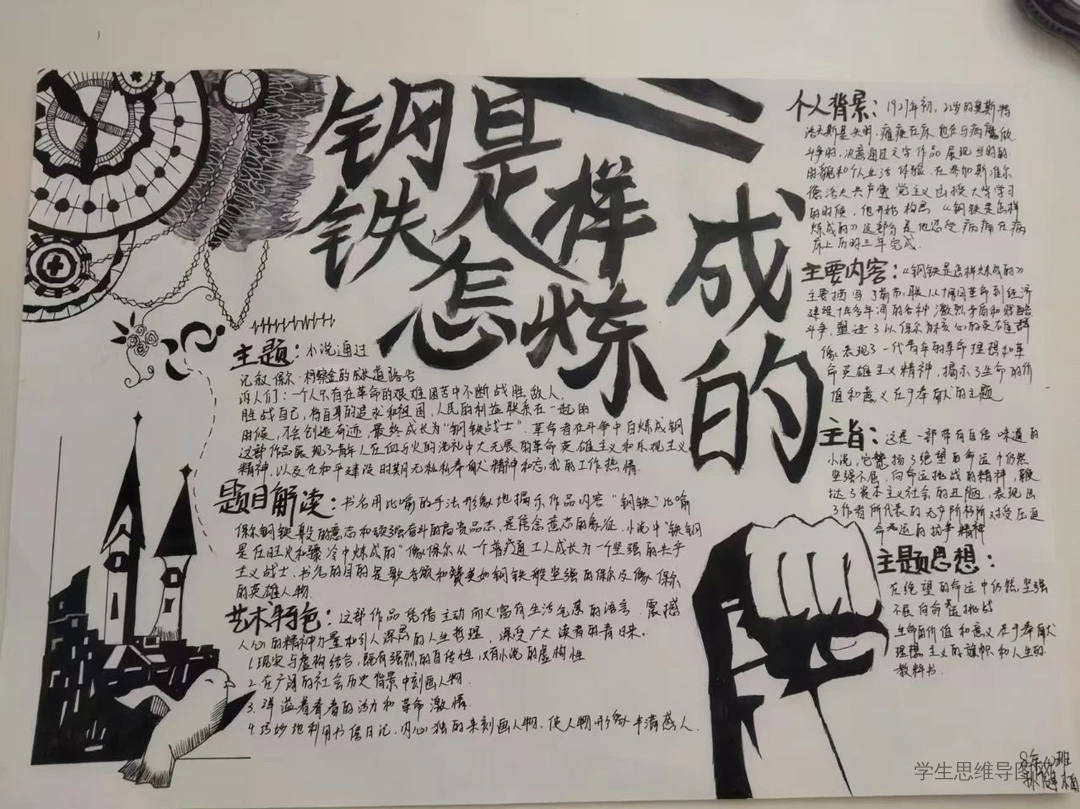 钢铁是怎样炼成的
主题：小说通过
记叙保尔·柯察金的成长道路告
诉人们：一个人只有在革命的艰难困苦中不断战胜敌人，
胜战自己，将自身的追求和祖国，人民的利益联系在一起的
时候，才会创造奇迹，最终成长为“钢铁战士”，革命者在斗争中百炼成钢
这部作品展现了青年人在血与火的洗礼中大无畏的革命英雄主义和乐观主义
精神，以及在和平建设时期无私私奉献人精神和忘我的工作热情.
题目解读：书名用比喻的手法形像地揭示作品内容“钢铁”比喻
保尔钢铁般的意志和顽强奋斗的高贵品志，是信念意志的象征，小说中“铁钢
是在旺火和骤冷中炼成的”像保尔从一个普疗通工人成长为一个坚强的共产
主义战士，书名的目的是歌者颂和赞美如钢铁般坚强的保尔及像保尔
的英雄人物.
艺术特色：这部作品凭借主动而又富有生活气息的语言，震撼
人心的精神力量和引人深层的人生哲理，深受广大读者的青睐.
1.现实与虚构结合，既有强烈的自传性，又有小说的虚构性
2.在广阔的社会历史背景中刻画人物.
3.洋溢着青春的活力和革命激情.
4.巧妙地利用书信日记，内心独的来刻画人物，使人物形像丰满感人.
个人背景：1927年初，22岁的奥斯特
洛夫斯基失明，瘫痪在床，他在与病魔做
斗争时，决意通过文字作品展现当时的
时貌和个人生活体验.在参加斯维尔
德洛夫共产党主义函授大学学习
的时候，他开始构思《钢铁是怎样
炼成的》这部分是他忍受病痛在病
床上历时三年完成.
主要内容：《钢铁是怎样炼成的》
主要描写了前苏联从十月革命到经济
建设十年多年间的各种激烈矛盾和残酷
斗争，塑造了以保尔为核心的英雄群
像表现了一代青年的革命理想和革
命英雄主义精神，揭示了生命的价
值和意义在于奉献的主题
主旨：这是一部带有自传味道的
小说，它赞扬了绝望的命运中仍然
坚强不屈，向命运挑战的精神，鞭
挞了资本主义社会的丑陋，表现出
了作者所代表的无产阶级对役压迫
命运的抗争精神
主题思想：
在绝望的命运中仍然坚强
不屈向命运挑战
生命的价值和意义在于奉献
理想主义的旗帜和人生的
教科书.
学生思维导图